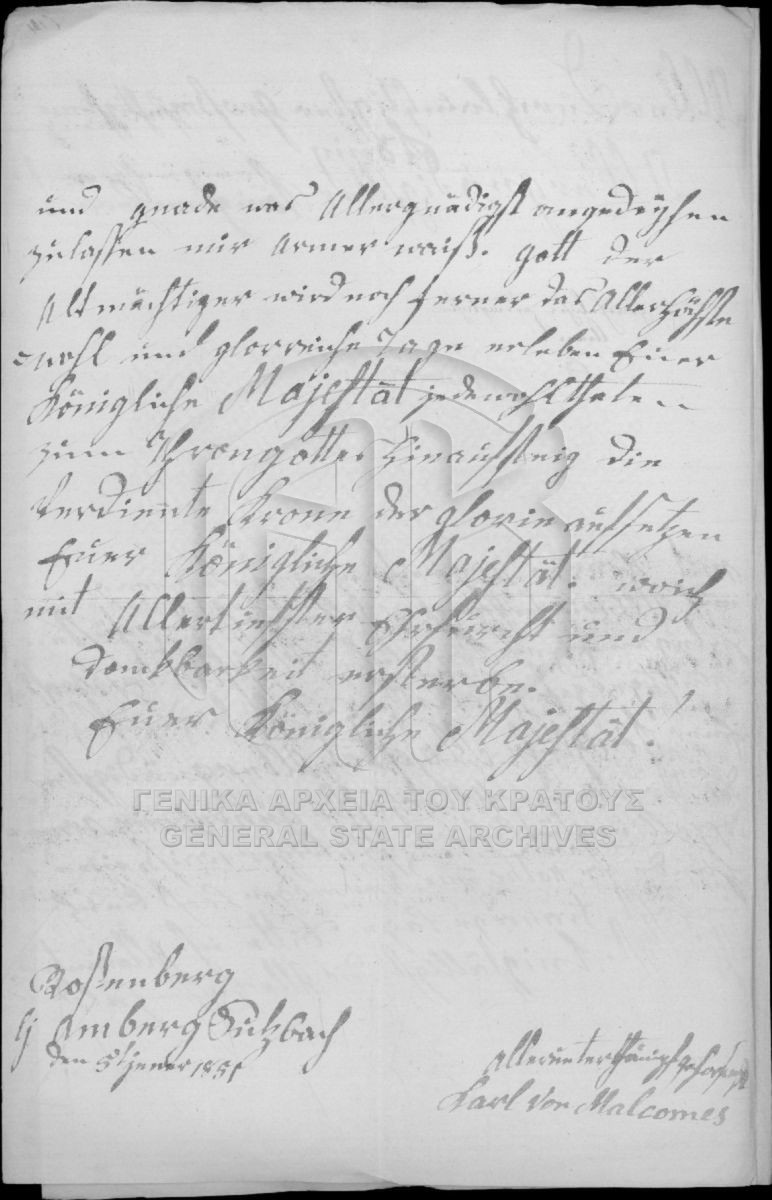 und gnade was Allergnädigst angedeyhen
zulassen mir armer waiß. gott der
Allmächtiger wird noch ferner das Allerhöchste
wohl und glorreiche Tage erleben Euer
Königliche Majestät jede wohlthaten
zum Thron gottes hinaufsteig die
Verdiente Krone der glorie aufsetzen
Euer Königliche Majestät. mich
mit Allertiefster Ehrfurcht und
dankbarkeit ersterbe.
Euer Königliche Majestät!
ΓΕΝΙΚΑ ΑΡΧΕΙΑ ΤΟΥ ΚΡΑΤΟΥΣ
GENERAL STATE ARCHIVES
Rosenberg
Amberg Sulzbach
den 5t Jener
Allerunterthänigst
Karl von Malcomes